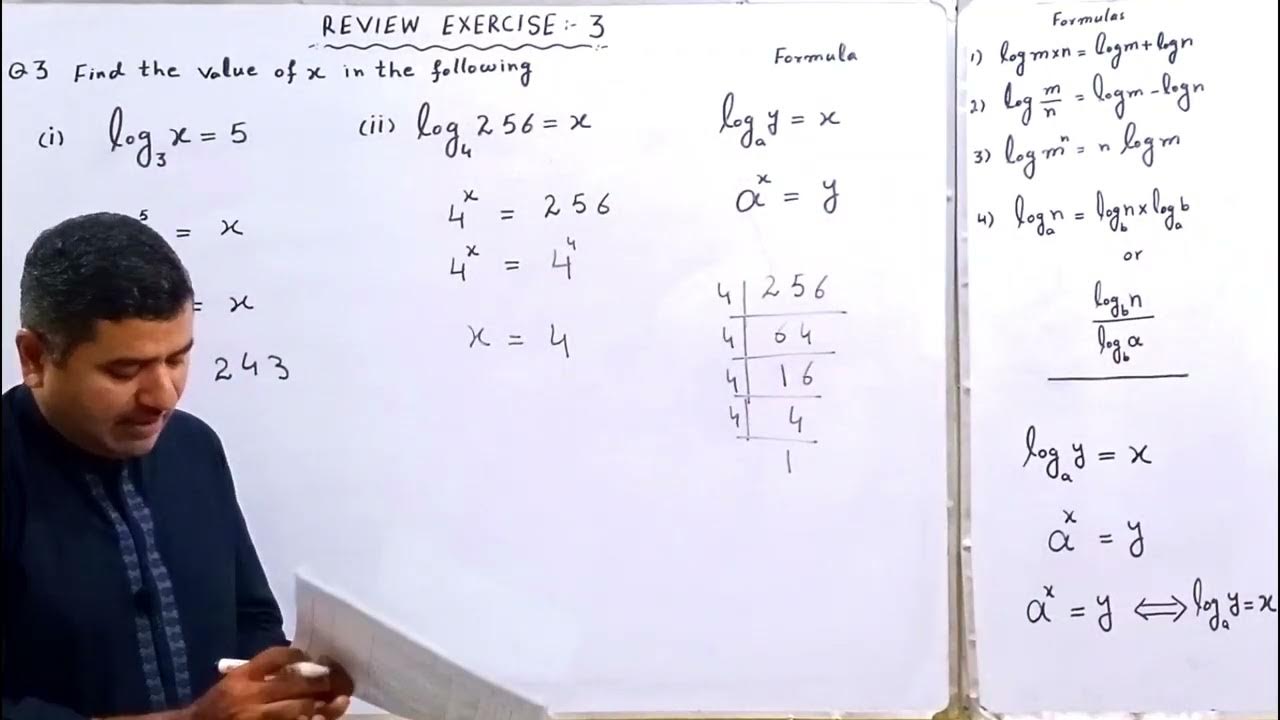 REVIEW EXERCISE:- 3
Q3 Find the value of x in the following
(i) log₃x = 5
⁵ = x
= x
243
(ii) log₄256 = x
4ˣ = 256
4ˣ = 4⁴
x = 4
Formula
logₐy = x
aˣ = y
4 | 256
4 | 64
4 | 16
4 | 4
1
Formulas
1) log m×n = logm + logn
2) log m/n = logm - logn
3) log mⁿ = n logm
4) logₐn = log_b n × logₐb
or
log_b n
log_b a
logₐy = x
aˣ = y
aˣ = y ⟺ logₐy = x